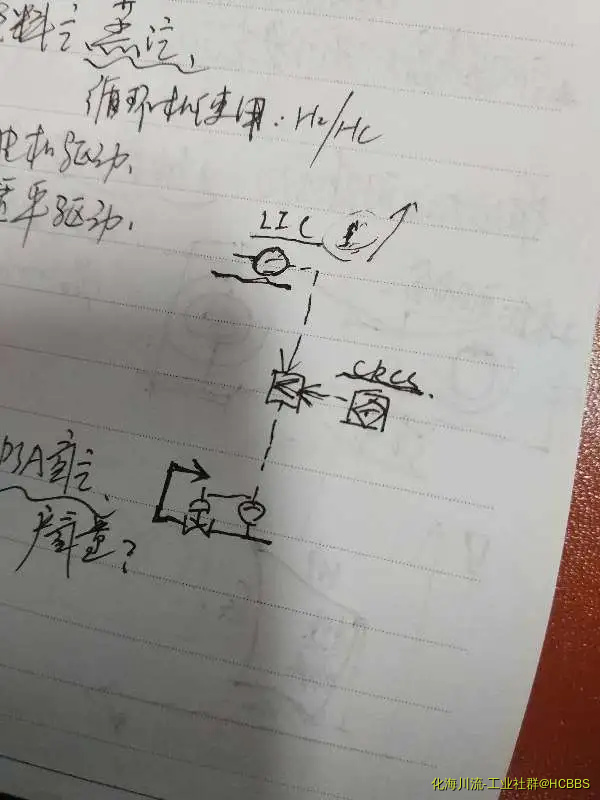 料气、蒸汽、
循环机使用：H2/HC
电机驱动、
驱动.
LIC
CRCS.
PSA
产氢量？
化海川流-工业社群@HCBBS